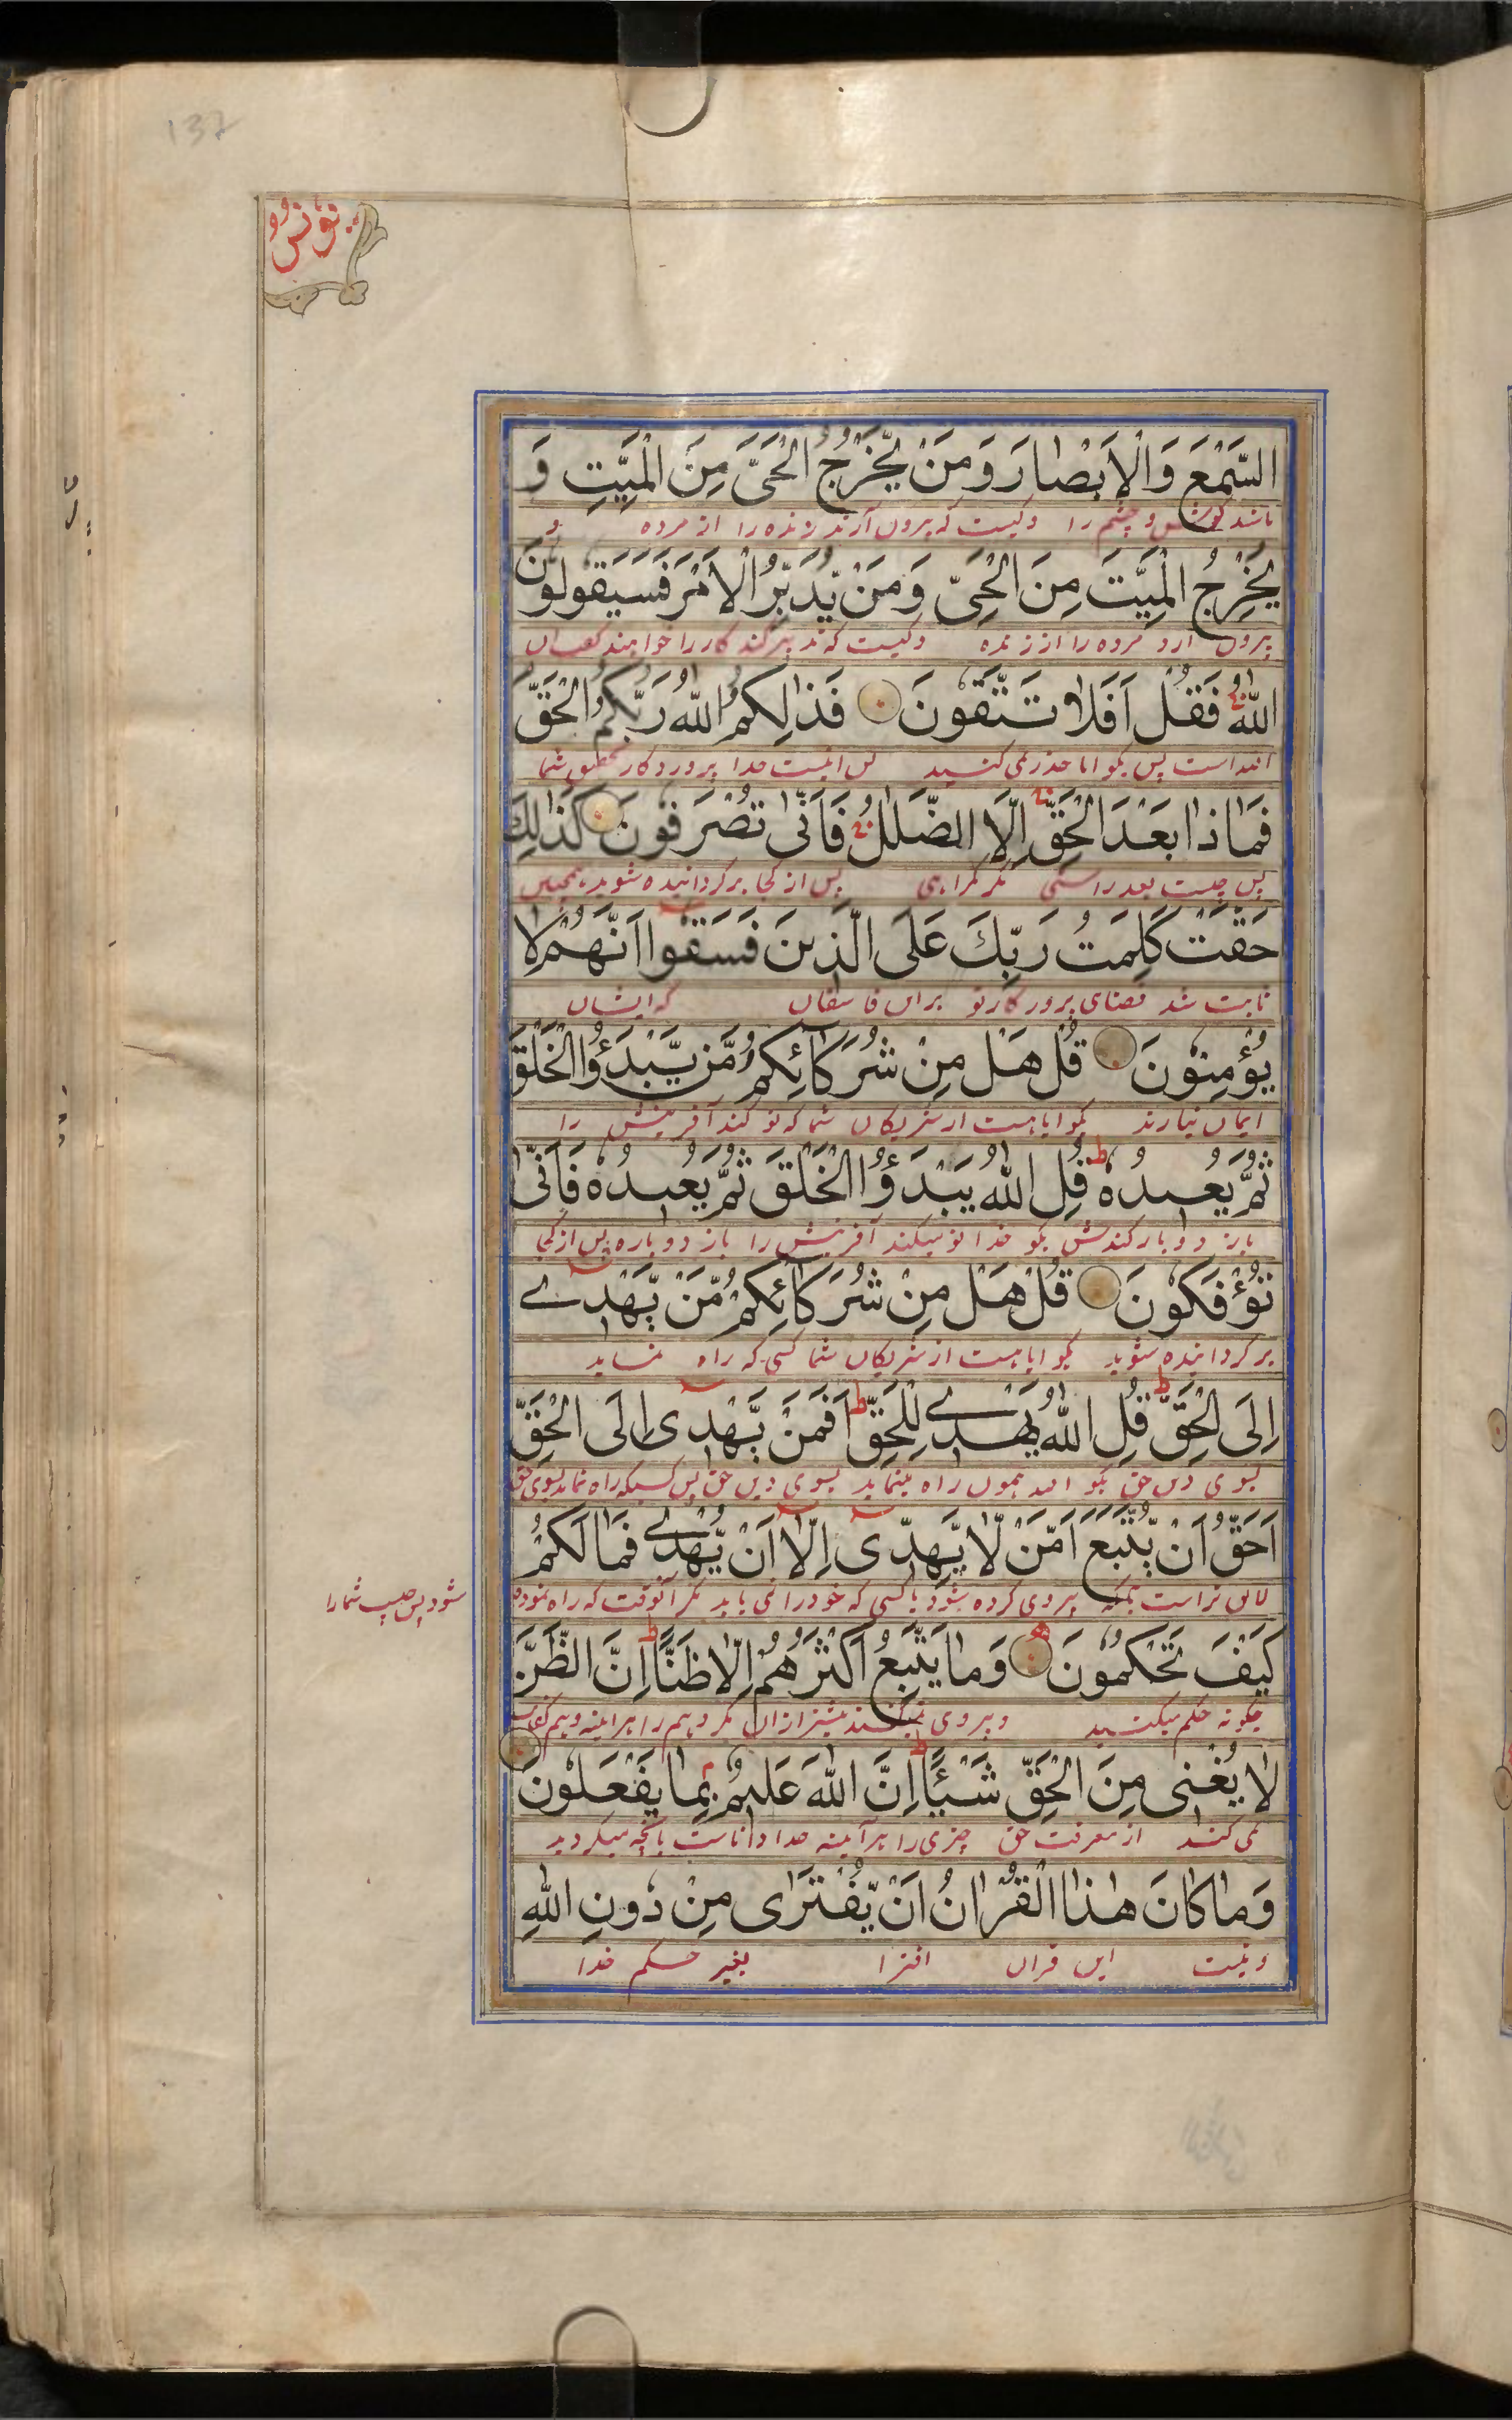 137
يونس
السَّمْعَ وَالْاَبْصٰارَ وَمَنْ يُّخْرِجُ الْحَىَّ مِنَ الْمَيِّتِ وَ
باشد كوش و چشم را وكيست كه بيرون آرد زنده را از مرده و
يُخْرِجُ الْمَيِّتَ مِنَ الْحَىِّ وَمَنْ يُّدَبِّرُ الْاَمْرَ فَسَيَقُولُونَ
بيرون آرد مرده را از زنده وكيست كه تدبير كند كار را خواهند كفت ان
اللّٰهُ فَقُلْ اَفَلٰا تَتَّقُونَ فَذٰلِكُمُ اللّٰهُ رَبُّكُمُ الْحَقُّ
الله است پس بكو ايا حذر نمى كنيد پس اينست خدا پروردكار شما
فَمٰاذٰا بَعْدَ الْحَقِّ اِلَّا الضَّلٰلُ فَاَنّٰى تُصْرَفُونَ كَذٰلِكَ
پس چيست بعد راستى مكر كمراهى پس از كجا بر كردانيده شويد همچنين
حَقَّتْ كَلِمَتُ رَبِّكَ عَلَى الَّذِينَ فَسَقُوا اَنَّهُمْ لٰا
ثابت شد قضاى پرور كار تو بران فاسقان كه ايشان
يُؤْمِنُونَ قُلْ هَلْ مِنْ شُرَكٰائِكُمْ مَّنْ يَّبْدَؤُا الْخَلْقَ
ايمان نيارند بكو ايا هست از شريكان شما كه نو كند آفرينش را
ثُمَّ يُعِيدُهُ قُلِ اللّٰهُ يَبْدَؤُا الْخَلْقَ ثُمَّ يُعِيدُهُ فَاَنّٰى
باز دوبار كندش بكو خدا نو ميكند آفرينش را باز دوباره پس از كجا
تُؤْفَكُونَ قُلْ هَلْ مِنْ شُرَكٰائِكُمْ مَّنْ يَّهْدِے
بر كردانيده شويد بكو ايا هست از شريكان شما كسى كه راه نمايد
اِلَى الْحَقِّ قُلِ اللّٰهُ يَهْدِے لِلْحَقِّ اَفَمَنْ يَّهْدِى اِلَى الْحَقِّ
بسوى دين حق بكو الله همون راه مينمايد بسوى دين حق پس كسيكه راه نمايد بسوى حق
اَحَقُّ اَنْ يُّتَّبَعَ اَمَّنْ لّٰا يَهِدِّى اِلّٰا اَنْ يُّهْدٰے فَمٰا لَكُمْ
لايق تر است بآنكه پيروى كرده شود يا كسى كه خود راه نمى يابد مكر آنوقت كه راه نموده
شود پس چيست شما را
كَيْفَ تَحْكُمُونَ وَمٰا يَتَّبِعُ اَكْثَرُهُمْ اِلّٰا ظَنًّا اِنَّ الظَّنَّ
چكونه حكم ميكنيد و پيروى نميكنند بيشتر از ان مكر وهم را هر اينه وهم
لٰا يُغْنِى مِنَ الْحَقِّ شَيْئًا اِنَّ اللّٰهَ عَلِيمٌ بِمٰا يَفْعَلُونَ
نمى كند از معرفت حق چيزى را هر آيينه خدا داناست بآنچه ميكرديد
وَمٰا كٰانَ هٰذَا الْقُرْاٰنُ اَنْ يُّفْتَرٰى مِنْ دُونِ اللّٰهِ
و نيست اين قران افترا بغير حكم خدا